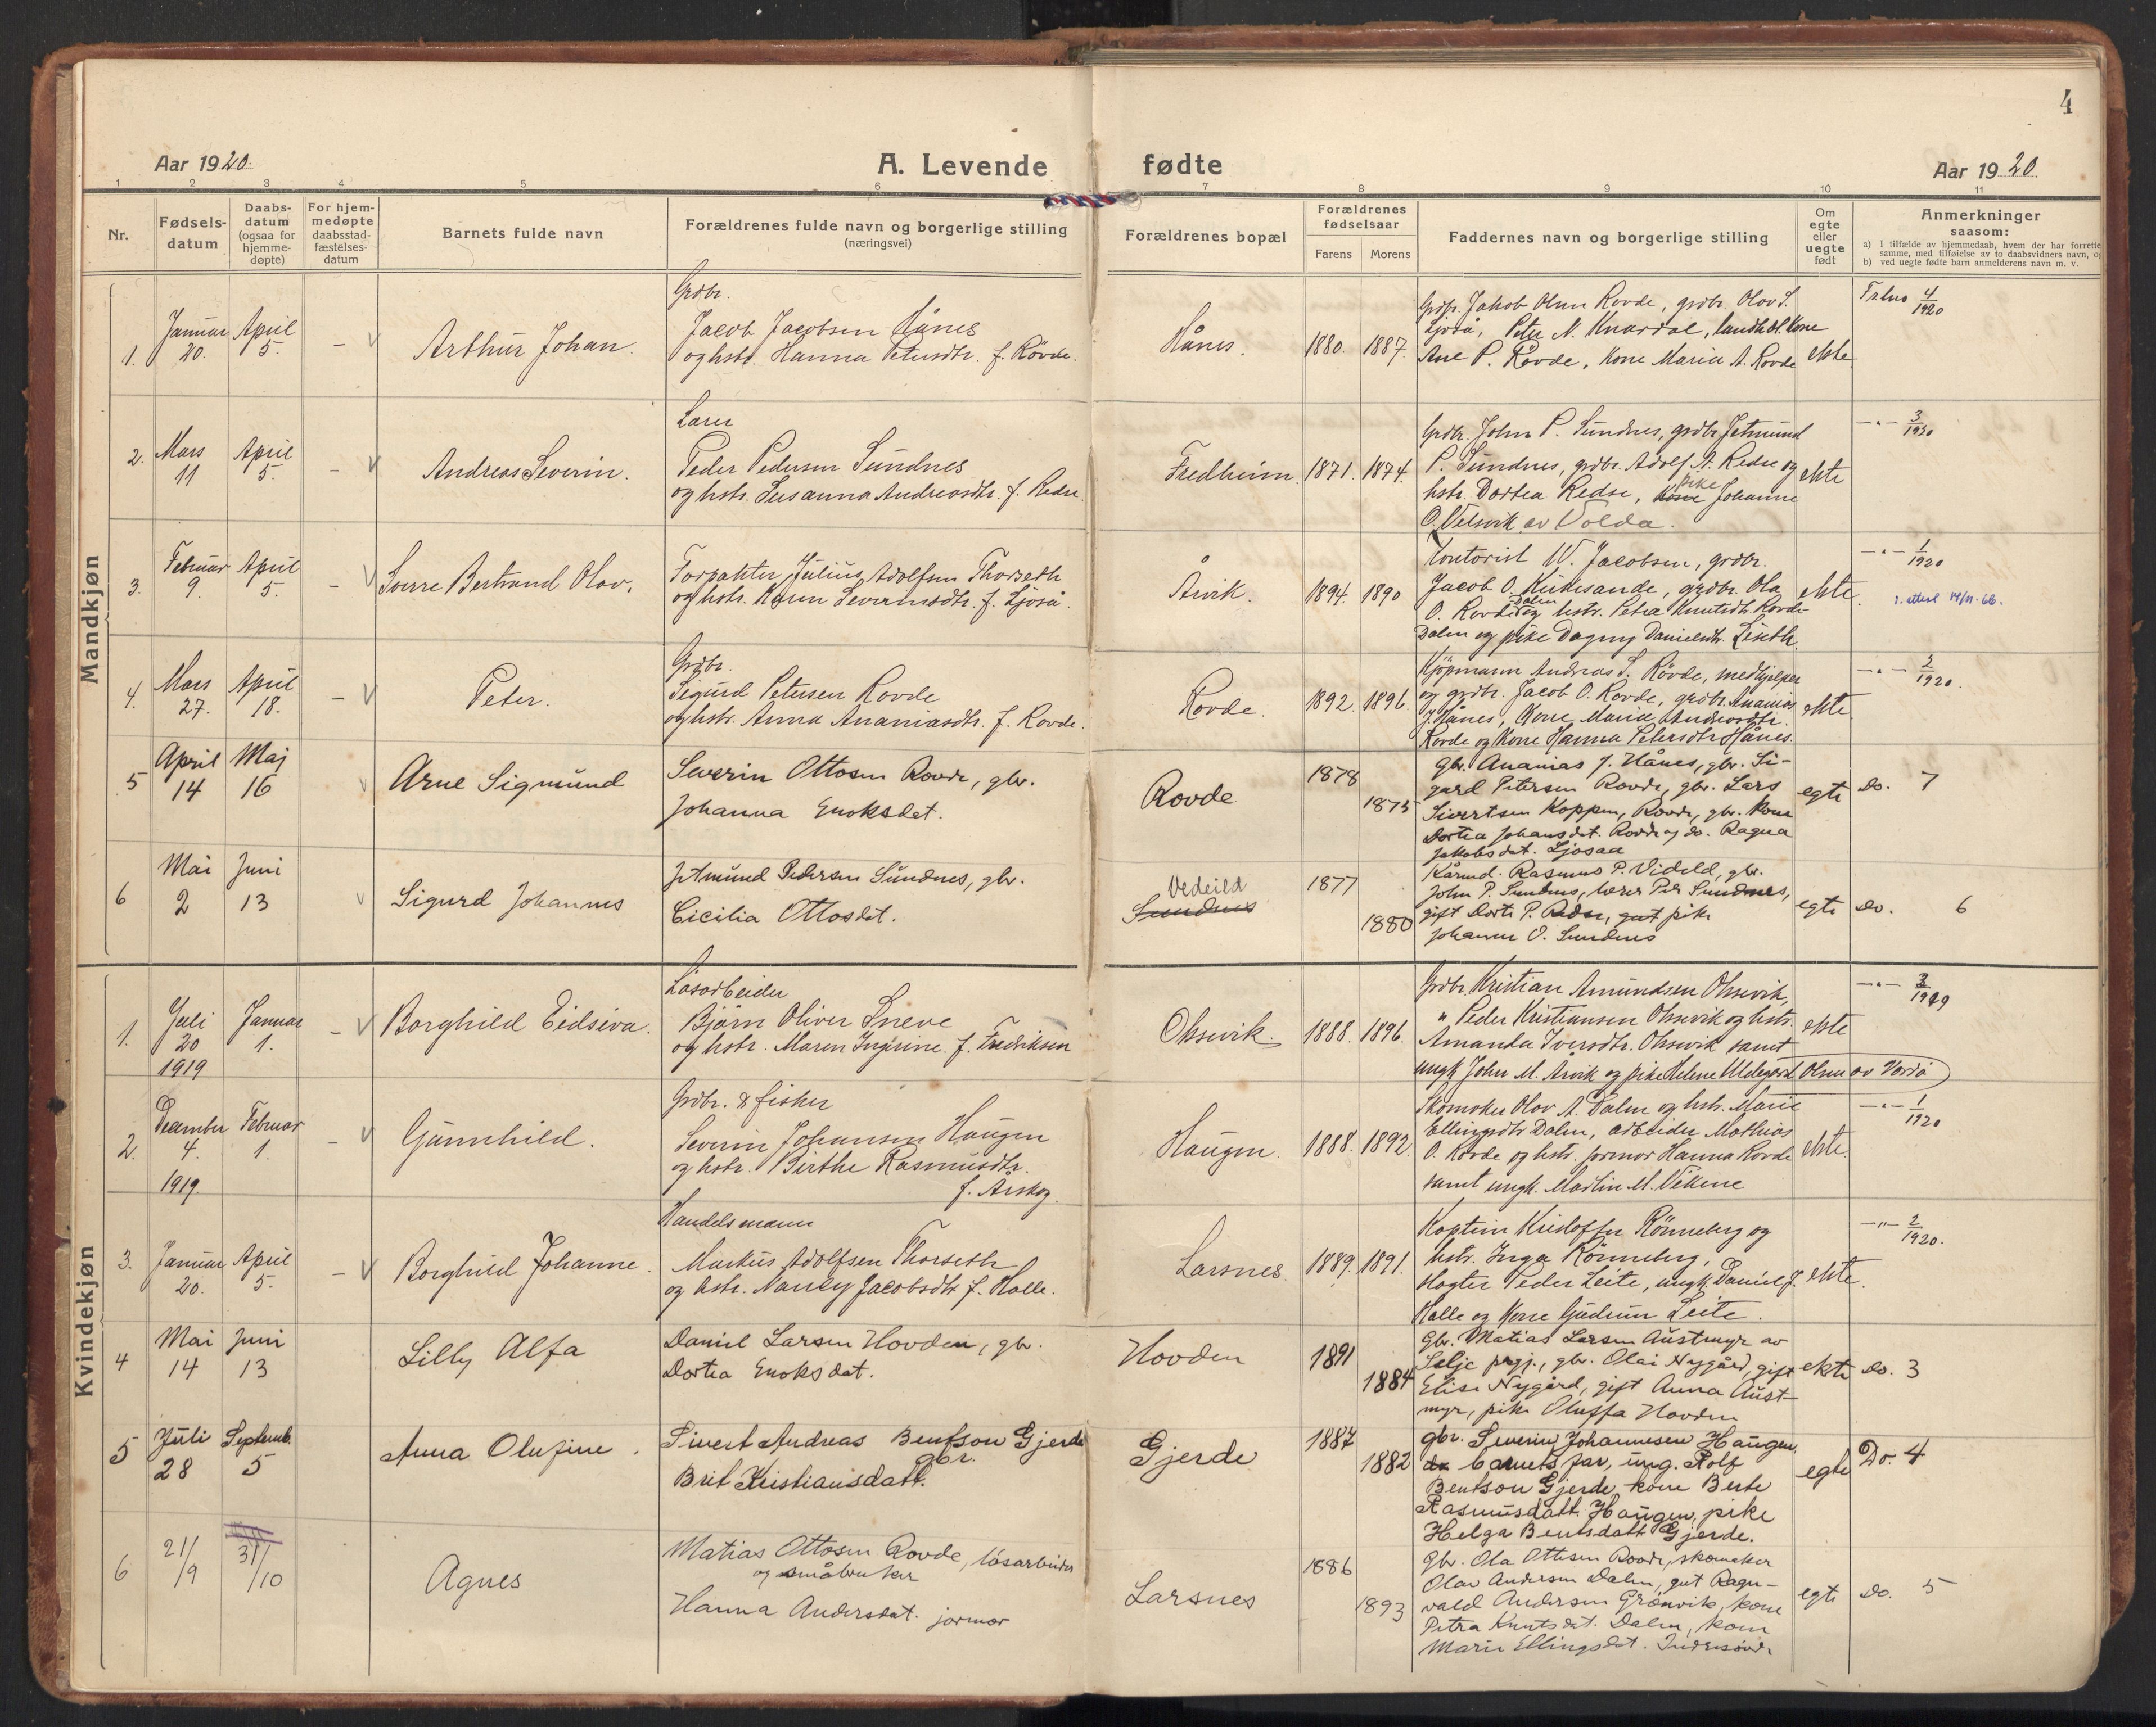 4
Aar 1920.
A. Levende fødte
Aar 1920.
1 2 3 4 5 6 7 8 9 10 11
Nr.
Fødsels-
datum
Daabs-
datum
(ogsaa for
hjemme-
døpte)
For hjem-
medøpte
daabsstad-
fæstelses-
datum
Barnets fulde navn
Forældrenes fulde navn og borgerlige stilling
(næringsvei)
Forældrenes bopæl
Forældrenes
fødselsaar
Farens Morens
Faddernes navn og borgerlige stilling
Om
egte
eller
uegte
født
Anmerkninger
saasom:
a) I tilfælde av hjemmedaab, hvem der har forrettet
samme, med tilføielse av to daabsvidners navn, og
b) ved uegte fødte barn anmelderens navn m. v.
Mandkjøn
1.
Januar
20.
April
5.
–
Arthur Johan.
Grdbr.
Jacob Jacobsen Hånes
og hstr. Hanna Petersdtr. f. Røvde.
Hånes.
1880. 1887.
Grdbr. Jakob Olsen Rovde, grdbr. Olov S.
Ljoså, Peter N. Knardal, landh.bl. kone
Ane P. Røvde, kone Marie A. Rovde
ekte
4
1920
2.
Mars
11
April
5.
–
Andreas Severin.
Lærer
Peder Pedersen Sundnes
og hstr. Susanna Andreasdtr. f. Redse
Fredheim.
1871. 1874.
Grdbr. John P. Sundnes, grdbr. Jetmund
P. Sundnes, grdbr. Adolf A. Redse og
hstr. Dortea Redse, kone pike Johanne
O. Velsvik av Volda.
ekte
–"– 3
1920
3.
Februar
9.
April
5.
–
Sverre Bertrand Olav.
Forpakter Julius Adolfsen Thorseth
og hstr. Karen Severinsdtr. f. Ljoså.
Årvik.
1894. 1890
Kontorist W. Jacobsen, grdbr.
Jacob O. Kirkesande, grdbr. Ola
O. Rovdedalen og hstr. Petra Knutsdtr. Rovde-
Dalen og pike Dagny Danielsdtr. Liseth
ekte.
–"– 1
1920
14/11-66.
4.
Mars
27.
April
18.
–
Peter.
Grdbr.
Sigurd Petersen Rovde
og hstr. Anna Ananiasdtr. f. Rovde.
Rovde.
1892. 1896.
Kjøpmann Andreas S. Røvde, medhjelper
og grdbr. Jacob O. Rovde, grdbr. Ananias
J. Hånes, kone Marie Andreasdtr.
Rovde og kone Hanna Petersdtr. Hånes.
ekte
–"– 3
1920.
5
April
14
Maj
16
Arne Sigmund
Severin Ottosen Rovde, gbr.
Johanna Enoksdat.
Rovde
1878
1875
Gbr. Ananias J. Hånes, gbr. Si-
gurd Petersen Rovde, gbr. Lars
Sivertsen Koppen, Rovde, gbr. kone
Dortea Johansdat. Rovde og do. Ragna
Jakobsdat. Ljosaa
egte
do. 7
6
Mai
2
Juni
13
Sigurd Johannes
Jetmund Pedersen Sundnes, gbr.
Cicilia Ottosdat.
Vedeild
Sundnes
1877
1880
Kårmd. Rasmus P. Videld, gbr.
John P. Sundnes, lærer Per Sundnes,
gift Dorte P. Redse, gut pike
Johanne O. Sundnes
egte
do. 6
Kvindekjøn
1.
Juli
20
1919
Januar
1.
–
Borghild Eidsiva.
Løsarbeider
Bjørn Oliver Sneve
og hstr. Maren Ingrine f. Fredriksen
Ohsevik.
1888. 1896.
Grdbr. Kristian Amundsen Ohsevik,
" Peder Kristiansen Ohsevik og hstr.
Amanda Iversdtr. Ohsevik samt
ungk. John M. Årvik og pike Helene Uldegard Olsen av Vardø
ekte
–"– 3
1919
2.
December
4.
1919.
Februar
1.
–
Gunnhild.
Grdbr. & fisker
Severin Johansen Haugen
og hstr. Birthe Rasmusdtr.
f. Årskog.
Haugen.
1888. 1892.
Skomaker Olav A. Dalen og hstr. Marie
Ellingsdtr. Dalen, arbeider Mathias
O. Rovde og hstr. jormor Hanna Rovde
samt ungk. Martin M. Vikene
ekte.
–"– 1
1920
3.
Januar
20.
April
5.
–
Borghild Johanne.
Handelsmann
Markus Adolfsen Thorseth
og hstr. Nancy Jacobsdtr. f. Halle.
Larsnes.
1889. 1891.
Kaptein Kristoffer Rönneberg og
hstr. Inga Rönneberg,
slagter Peder Leite, ungk. Daniel J.
Halle og kone Gudrun Leite.
ekte.
–"– 2
1920.
4
Mai
14
Juni
13
Lilly Alfa
Daniel Larsen Hovden, gbr.
Dortea Enoksdat.
Hovden
1891
1884
Gbr. Matias Larsen Austmyr av
Selje prgj., gbr. Olai Nygård, gift
Elise Nygård, gift Anna Aust-
myr, pike Oluffa Hovden
ekte
do. 3
5
Juli
28
Septemb.
5
Anna Olufine.
Sivert Andreas Bentson Gjerde
gbr.
Brit Kristiansdatt.
Gjerde
1887
1882
gbr. Severin Johannesen Haugen
barnets far, ung. Rolf
Bentson Gjerde, kone Berte
Rasmusdatt. Haugen, pike
Helga Bentsdatt. Gjerde.
egte
Do. 4
6
21/9
31/10
Agnes
Matias Ottosen Rovde, løsarbeider
og småbruker
Hanna Andersdat. jormor
Larsnes
1886
1893
Gbr. Ola Ottesen Rovde, skomaker
Olav Andersen Dalen, gut Ragn-
vald Andersen Grönvik, kone
Petra Knutsdat. Dalen, kone
Marie Ellingsdat. Indresövde
egte
do. 5